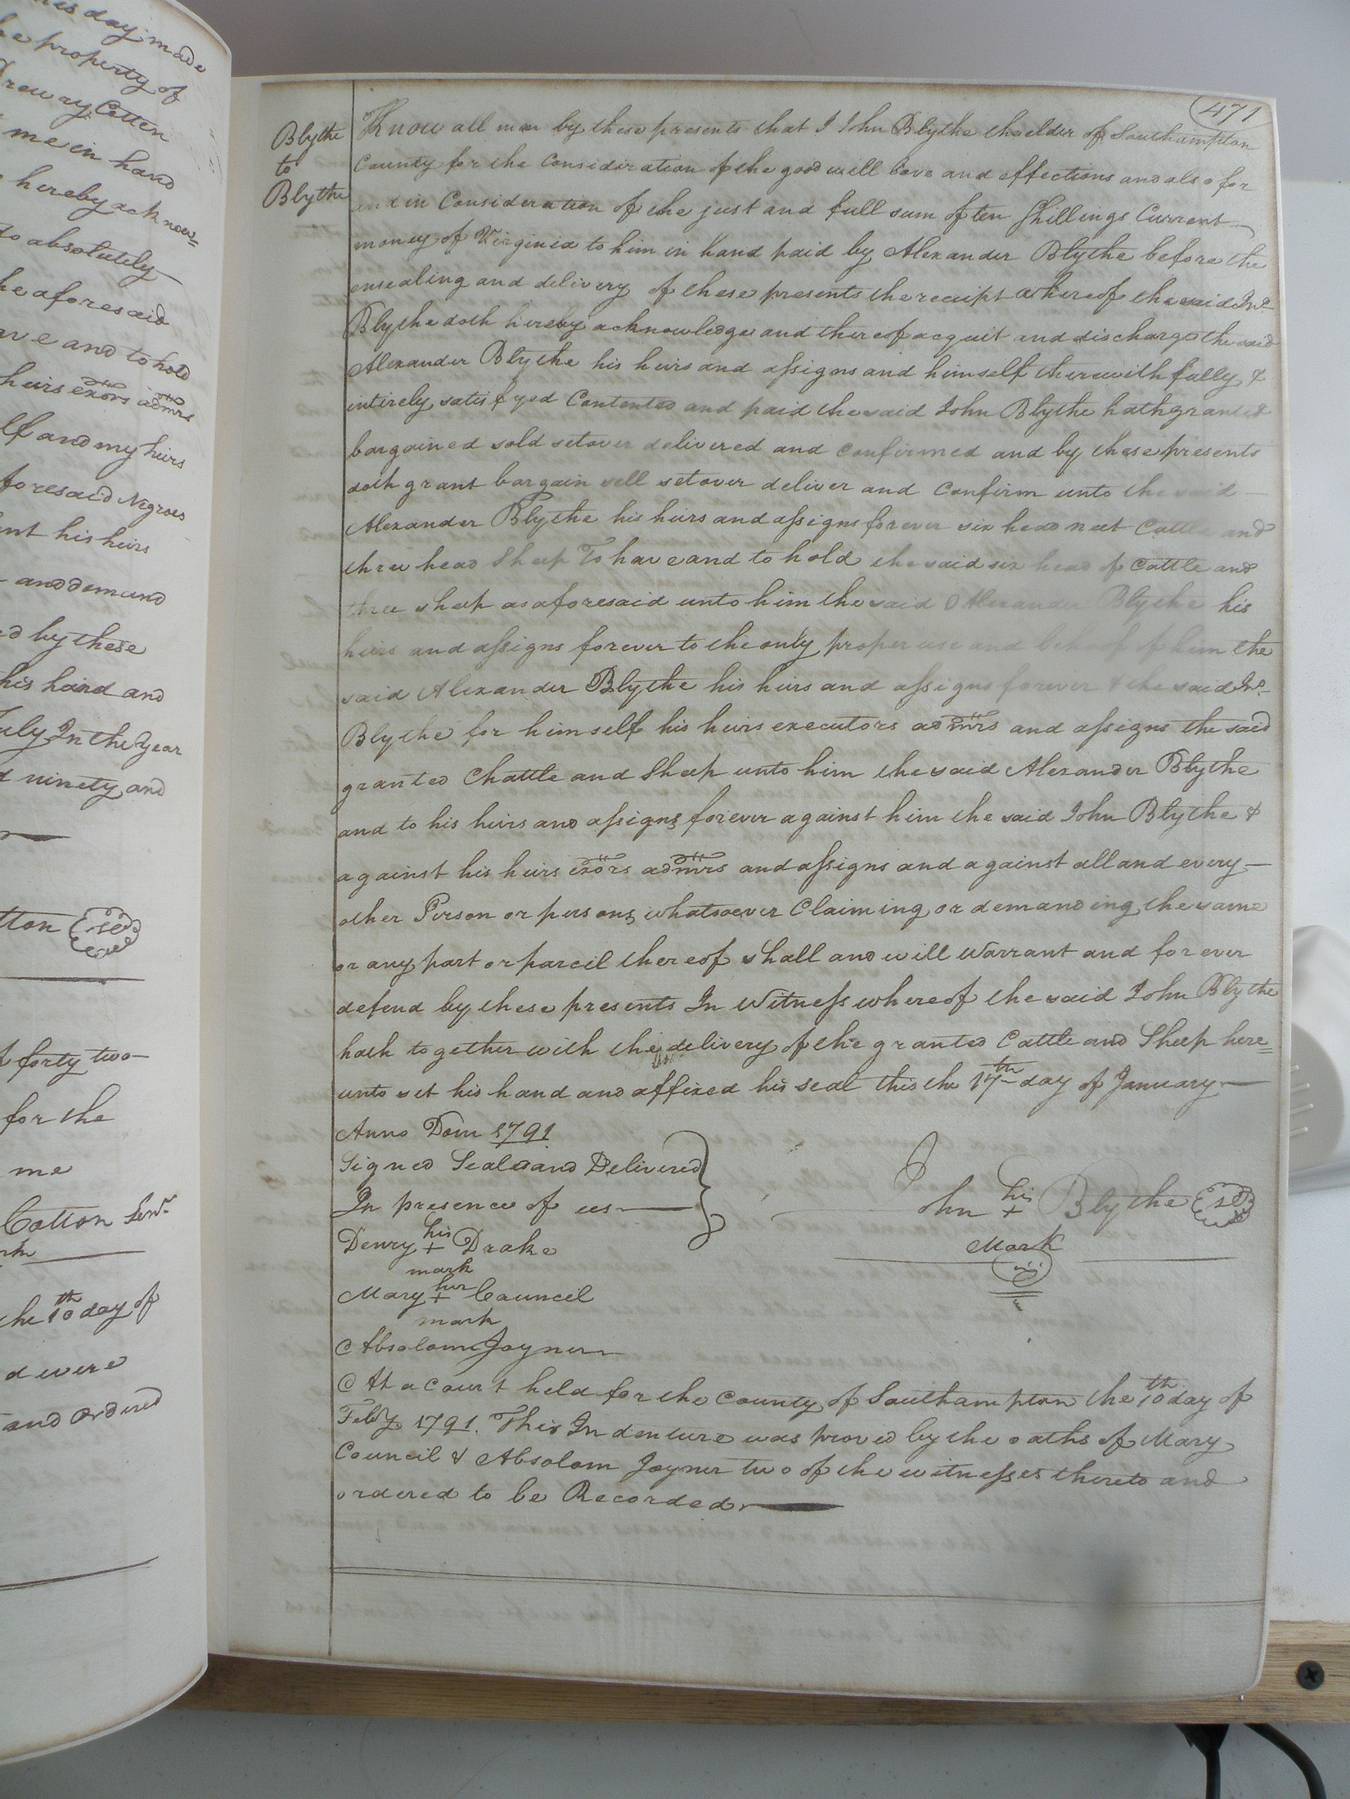 is day made
be property of
Drewry Cotten
me in hand
hereby acknow=
to absolutely
he aforesaid
ave and to hold
heirs exors admrs
lf and my heirs
foresaid Negroes
ent his heirs
and demand
ed by these
his hand and
July In the Year
d ninety and
tton
forty two
for the
me
Cotton Senr
rk
the 10th day of
d were
and ordered
471
Blythe
to
Blythe
Know all men by these presents that I John Blythe the elder of Southampton
County for the Consideration of the good will love and effections and also for
and in Consideration of the just and full sum of ten Shillings Current
money of Virginia to him in hand paid by Alexander Blythe before the
ensealing and delivery of these presents the receipt whereof the said Jno
Blythe doth hereby acknowledge and thereof acquit and discharge the said
Alexander Blythe his heirs and assigns and himself therewith fully &
intirely satisfyed Contented and paid the said John Blythe hath granted
bargained sold setover delivered and confirmed and by these presents
doth grant bargain sell setover deliver and Confirm unto the said
Alexander Blythe his heirs and assigns forever six head neet Cattle and
three head Sheep To have and to hold the said six head of Cattle and
three sheep as aforesaid unto him the said Alexander Blythe his
heirs and assigns forever to the only proper use and behoof of him the
said Alexander Blythe his heirs and assigns forever & the said Jno
Blythe for himself his heirs executors admrs and assigns the said
granted Chattle and Sheep unto him the said Alexander Blythe
and to his heirs and assigns forever against him the said John Blythe &
against his heirs exors admrs and assigns and against all and every
other Person or persons whatsoever Claiming or demanding the same
or any part or parcil thereof shall and will Warrant and for ever
defend by these presents In Witness whereof the said John Blythe
hath together with the delivery of the granted Cattle and Sheep here=
unto set his hand and affixed his seal this the 17th day of January
Anno Dom 1791
Signed Seald and Delivered
In presence of us
John his + Blythe
Mark
Henry his + Drake
mark
Mary her + Councel
mark
Absolom Joyner
At a Court held for the County of Southampton the 10th day of
Feby 1791. This Indenture was proved by the oaths of Mary
Council & Absolom Joyner two of the witnesses thereto and
ordered to be Recorded